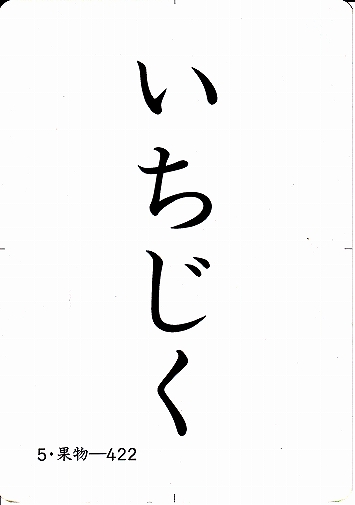 いちじく
5・果物—422